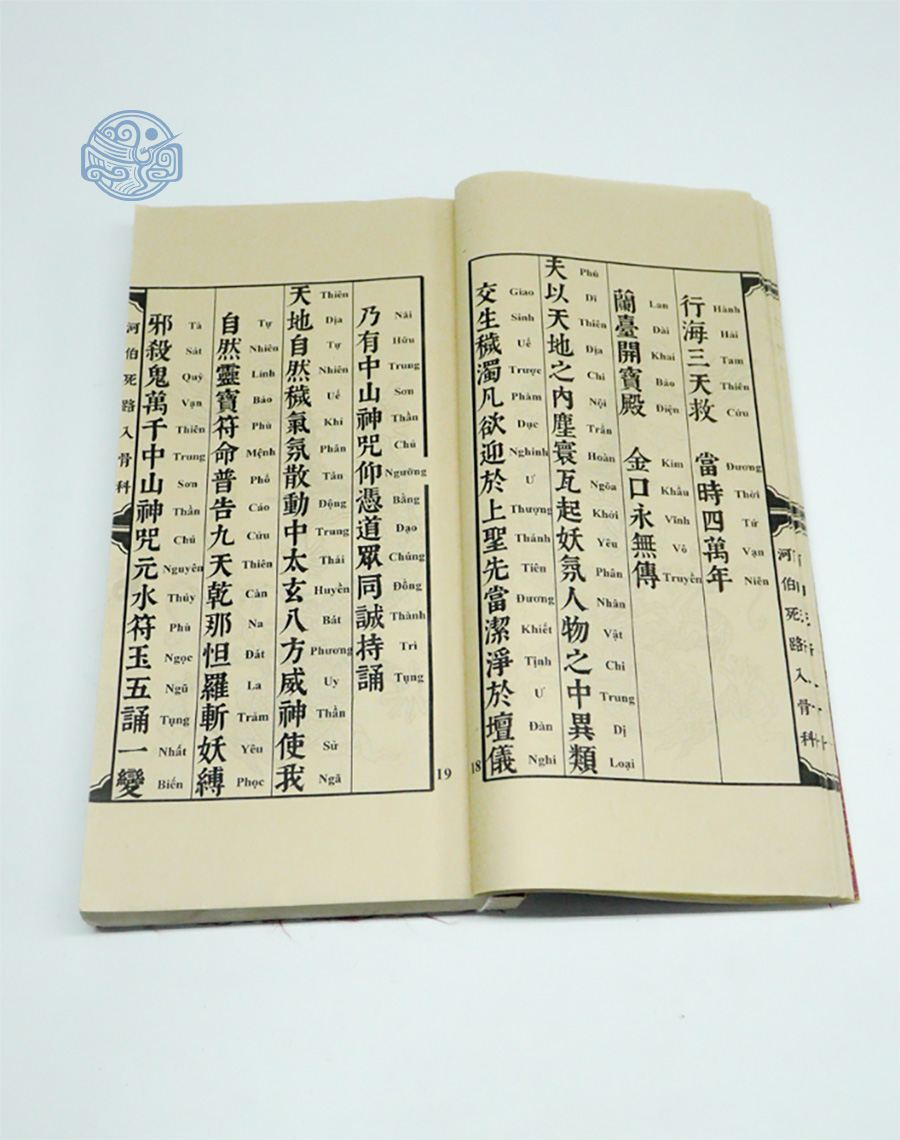 行海三天救 當時四萬年
Hành Hải Tam Thiên Cứu Đương Thời Tứ Vạn Niên
蘭臺開寶殿 金口永無傳
Lan Đài Khai Bảo Điện Kim Khẩu Vĩnh Vô Truyền
夫以天地之內塵寰瓦起妖氛人物之中異類
Phù Dĩ Thiên Địa Chi Nội Trần Hoàn Ngõa Khởi Yêu Phân Nhân Vật Chi Trung Dị Loại
交生穢濁凡欲迎於上聖先當潔淨於壇儀
Giao Sinh Uế Trược Phàm Dục Nghinh Ư Thượng Thánh Tiên Đương Khiết Tịnh Ư Đàn Nghi
河伯死路入骨科
18
乃有中山神咒仰憑道眾同誠持誦
Nãi Hữu Trung Sơn Thần Chú Ngưỡng Bằng Đạo Chúng Đồng Thành Trì Tụng
天地自然穢氣氛散動中太玄八方威神使我
Thiên Địa Tự Nhiên Uế Khí Phân Tán Động Trung Thái Huyền Bát Phương Uy Thần Sử Ngã
自然靈寶符命普告九天乾那怛羅斬妖縛
Tự Nhiên Linh Bảo Phù Mệnh Phổ Cáo Cửu Thiên Càn Na Đát La Trảm Yêu Phọc
邪殺鬼萬千中山神咒元水符玉五誦一變
Tà Sát Quỷ Vạn Thiên Trung Sơn Thần Chú Nguyên Thủy Phù Ngọc Ngũ Tụng Nhất Biến
河伯死路入骨科
19